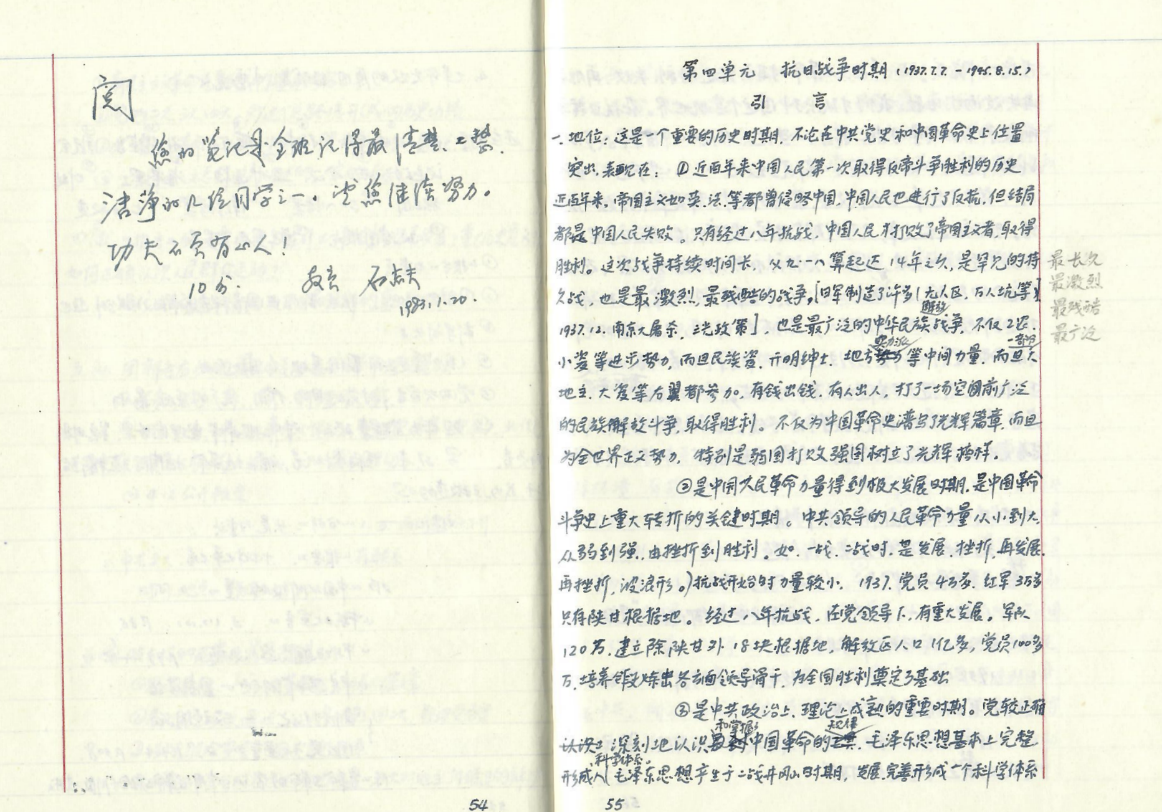 阅
您的笔记是全班记得最清楚、整
洁净的几位同学之一。望您继续努力。
功夫不负苦心人！
10分
1983.1.20.
54
第四单元 抗日战争时期（1937.7.7. 1945.8.15.）
引 言
一、地位：这是一个重要的历史时期，不论在中共党史和中国革命史上位置
突出，表现在：①近百年来中国人民第一次取得反帝斗争胜利的历史
近百年来，帝国主义如英、法、等都曾侵略中国，中国人民也进行了反抗，但结局
都是中国人民失败。只有经过八年抗战，中国人民打败了帝国主义者，取得
胜利。这次战争持续时间长，从九一八算起达14年之久，是罕见的持
久战，也是最激烈、最残酷的战争，[日军制造了许多无人区，万人坑等]
1937.12.南京大屠杀，三光政策] 也是最广泛的中华民族战争，不仅工农
小资等进步势力，而且民族资、开明绅士、地方 等中间力量，而且大
地主、大资等右翼都参加。有钱出钱，有人出人，打了一场空前广泛
的民族解放斗争，取得胜利。不仅为中国革命史谱写了光辉篇章，而且
为全世界正义势力，特别是弱国打败强国树立了光辉榜样。
最长久
最激烈
最残酷
最广泛
②是中国人民革命力量得到极大发展时期，是中国革命
斗争史上重大转折的关键时期。中共领导的人民革命力量从小到大
从弱到强，由挫折到胜利。（如一战、二战时是发展、挫折、再发展、
再挫折，波浪形。）抗战开始时力量较小。1937.党员4万多，红军3万多
只有陕甘根据地。经过八年抗战，在党领导下，有重大发展。军队
120万，建立除陕甘外18块根据地，解放区人口1亿多，党员120多
万，培养锻炼出各方面领导骨干，为全国胜利奠定了基础
③是中共政治上、理论上成熟的重要时期。党较正确
规律
深刻地认识 中国革命的 毛泽东思想基本上完整
科学体系
形成。毛泽东思想产生于二战井冈山时期，发展完善形成一个科学体系
55